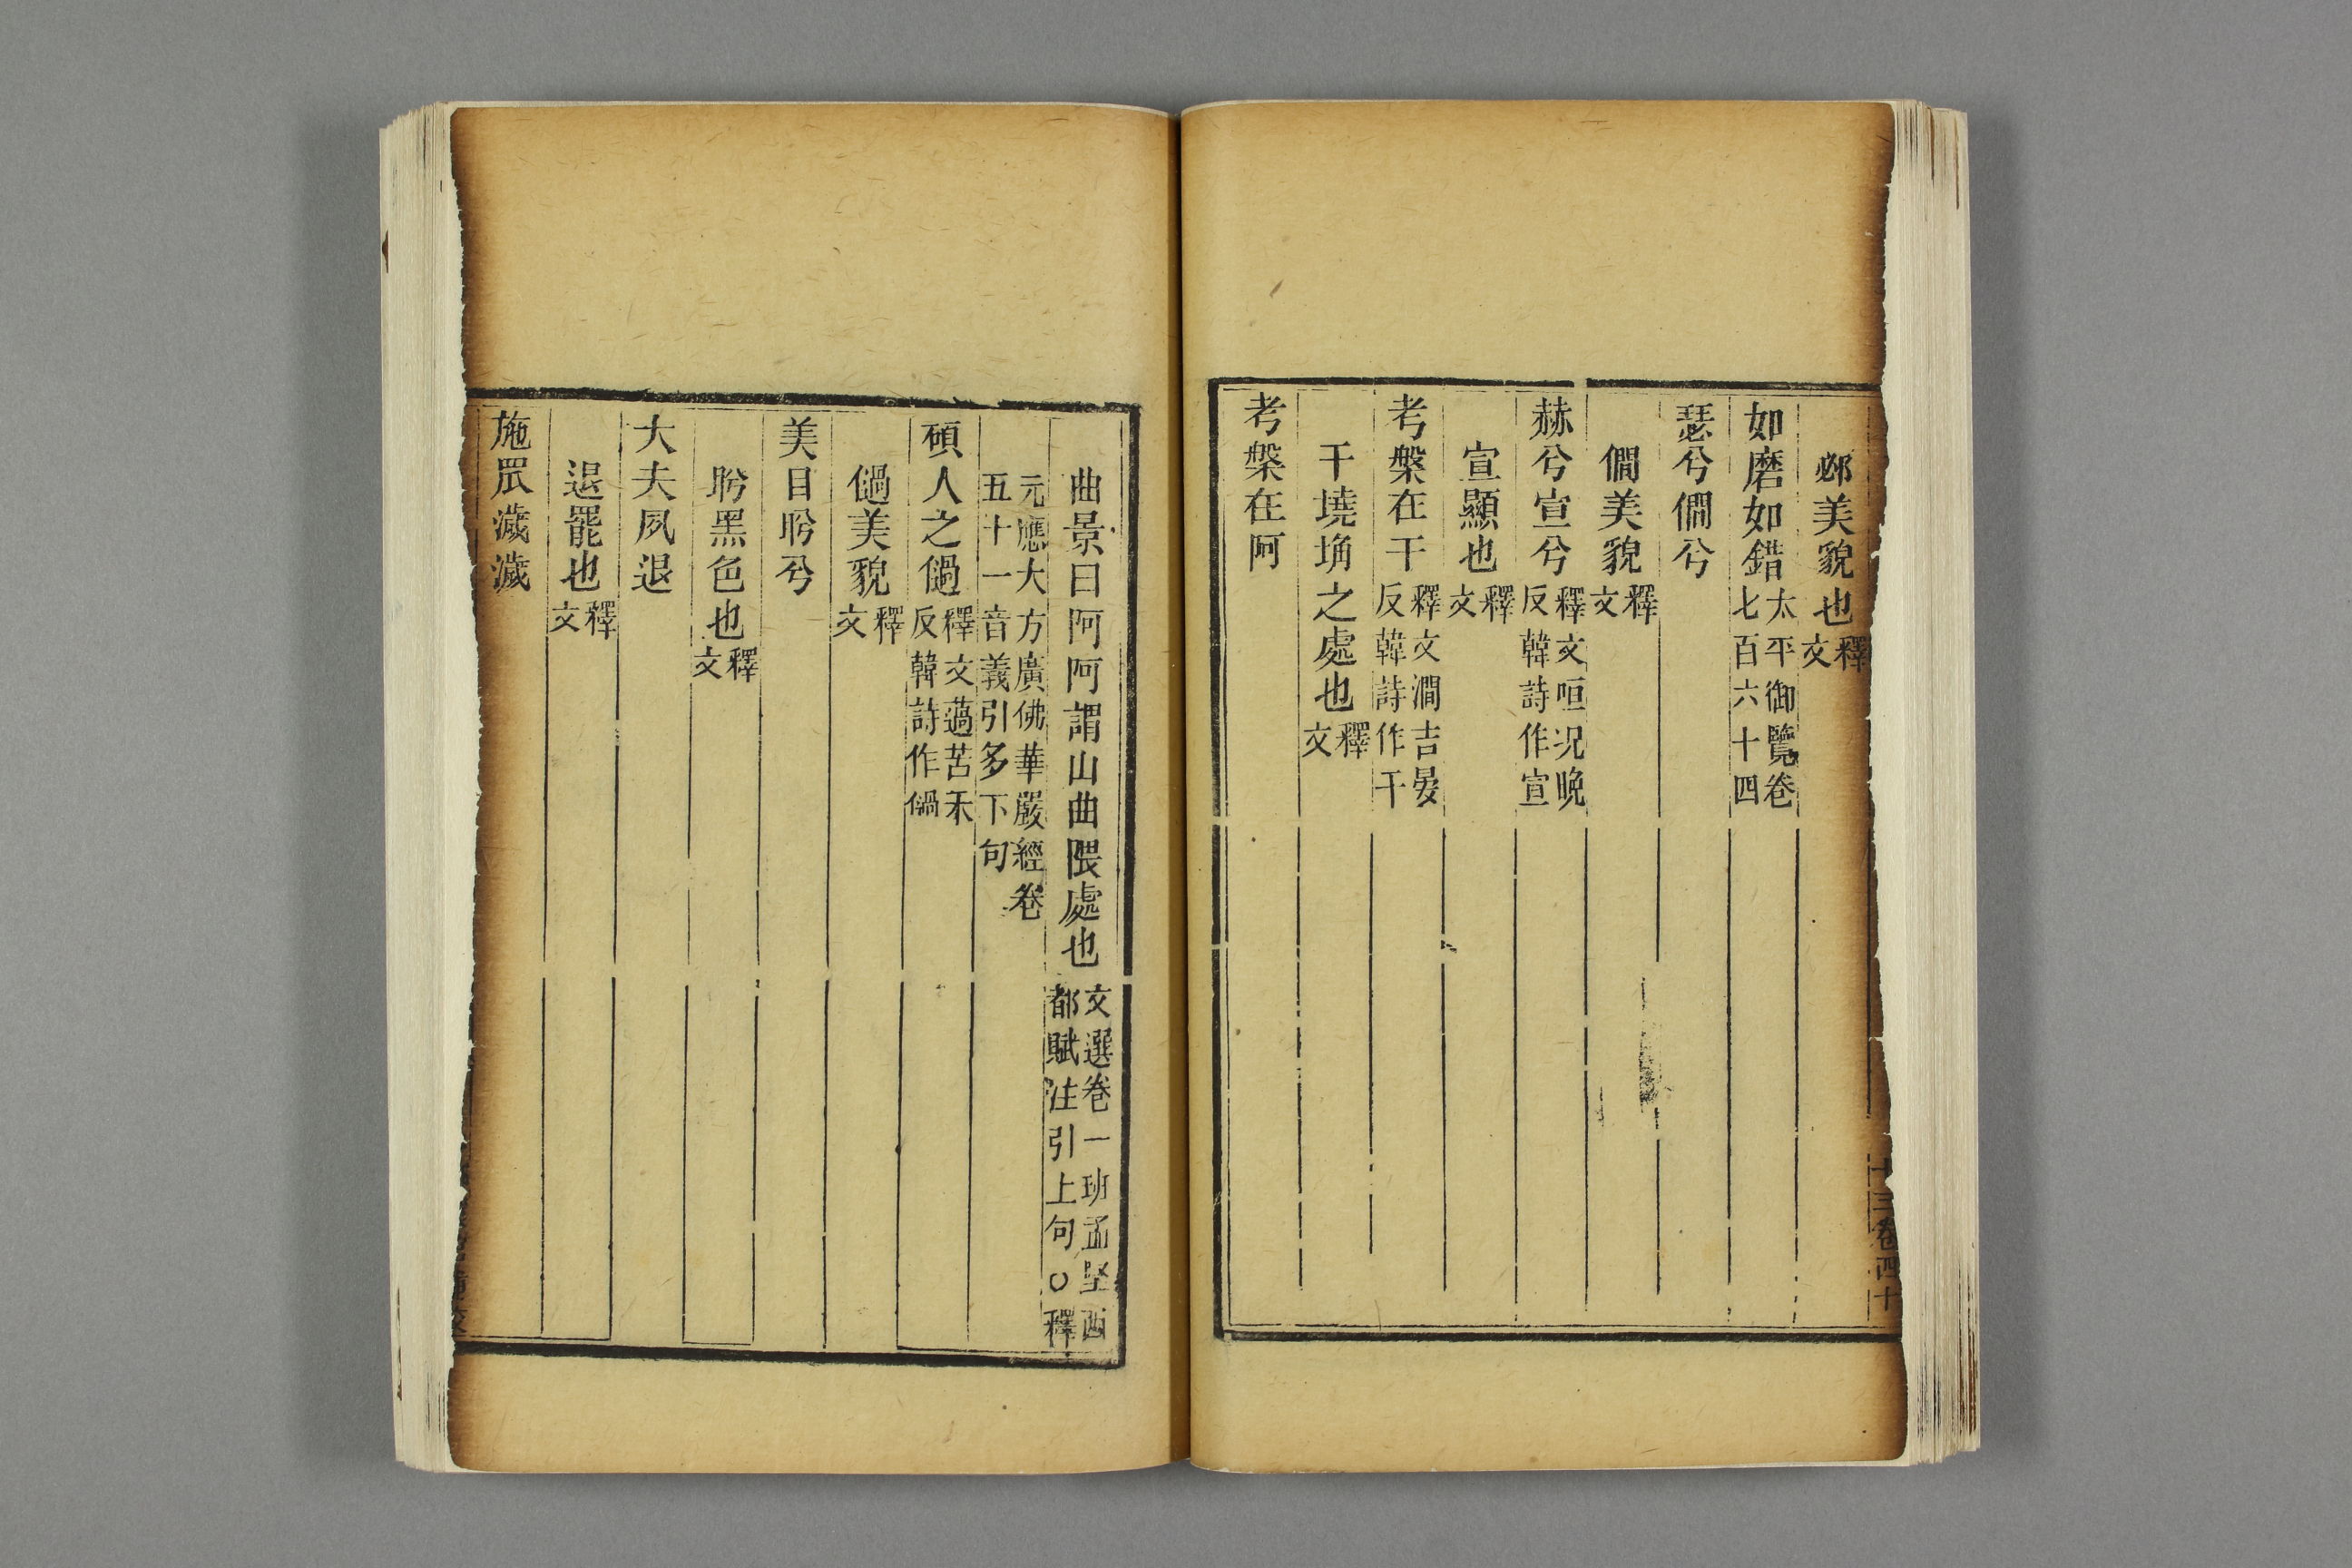 邲美貌也釋文
如磨如錯太平御覽卷七百六十四
瑟兮僩兮
僩美貌釋文
赫兮宣兮釋文咺況晚反韓詩作宣
宣顯也釋文
考槃在干釋文澗吉晏反韓詩作干
干墝埆之處也釋文
考槃在阿
曲景曰阿阿謂山曲隈處也文選卷一班孟堅西都賦注引上句○釋
元應大方廣佛華嚴經卷五十一音義引多下句
碩人之㒓釋文薖苦禾反韓詩作㒓
㒓美貌釋文
美目盻兮
盻黑色也釋文
大夫夙退
退罷也釋文
施罛濊濊
十三卷四十